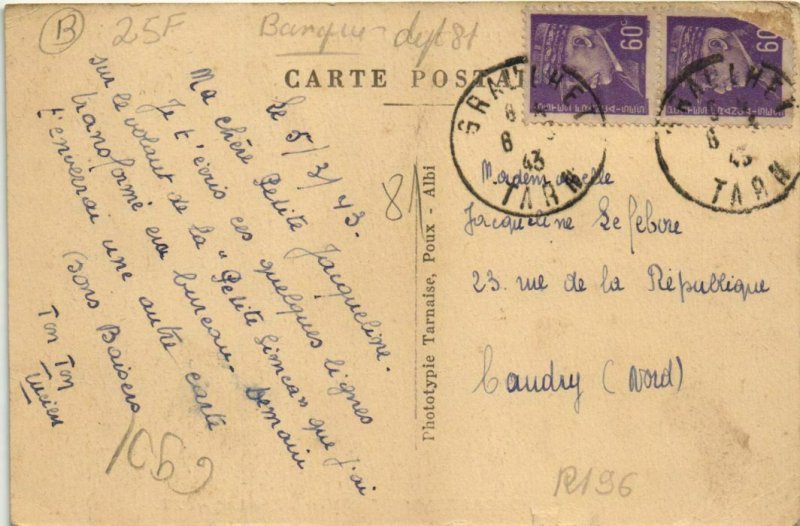 B
25F
Barque - dept 81
CARTE POSTALE
Le 5/3/43.
Ma chère Petite Jacqueline.
Je t'écris ces quelques lignes
sur le volant de la "Petite Simca" que j'ai
transformé en bureau. Demain
t'enverrai une autre carte
Bons Baisers
Ton Ton
Lucien
81
Phototypie Tarnaise, Poux - Albi
60c
60c
GRAULHET
43
TARN
GRAULHET
43
TARN
Mademoiselle
Jacqueline Lefebvre
23. rue de la République
Caudry (Nord)
R196